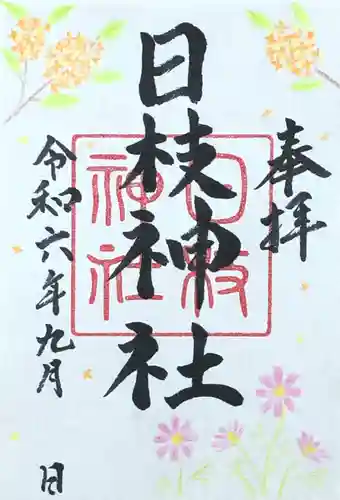 奉拝
日枝神社
日枝神社
令和六年九月 日